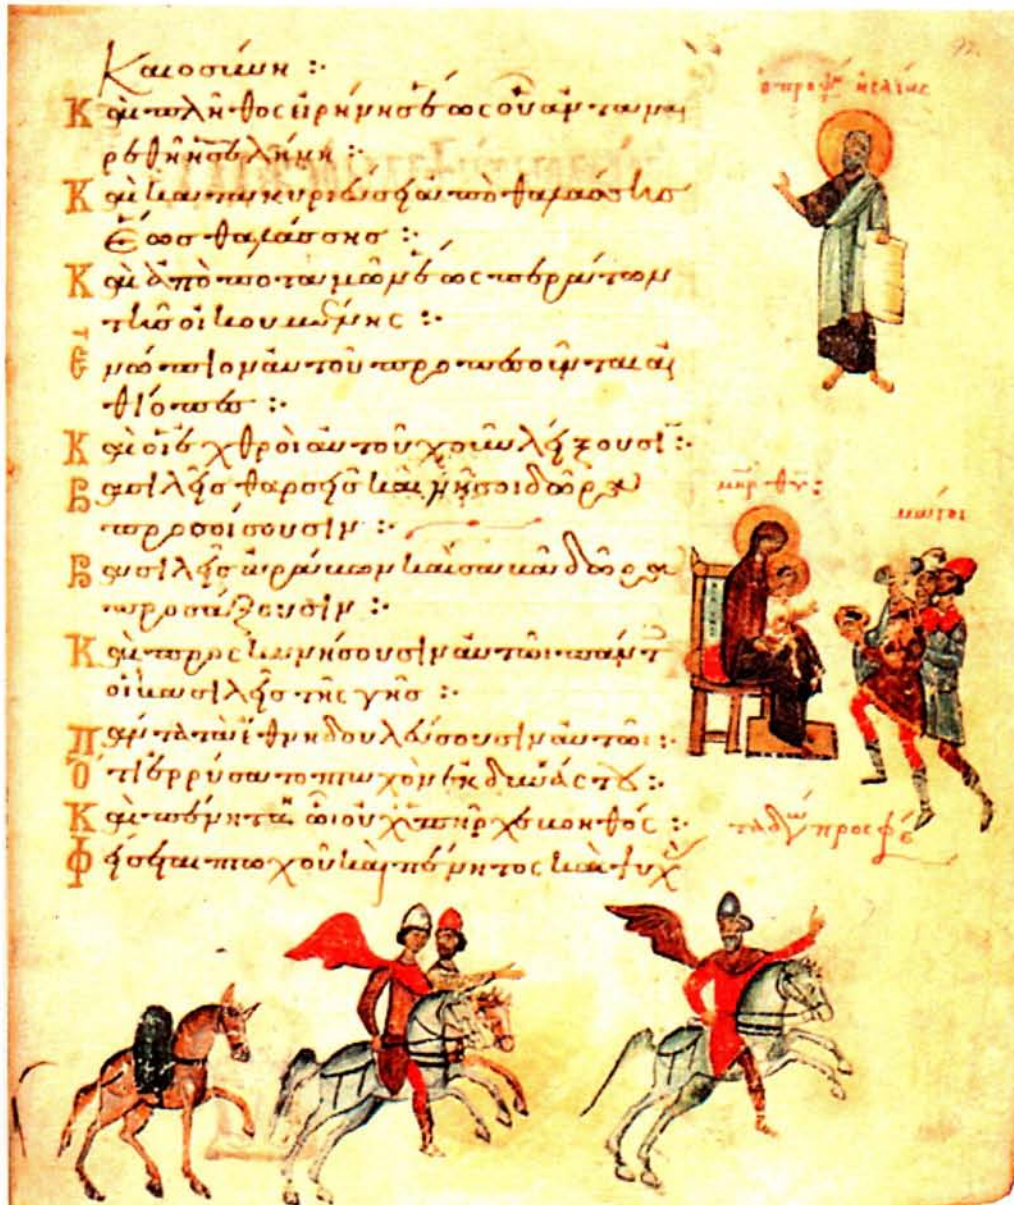 Καιοσύνη :·
Καὶ πλῆθος εἰρήνης ἕως οὗ ἀνταναι
ρεθῇ ἡ σελήνη :·
Καὶ κατακυριεύσει ἀπὸ θαλάσσης
ἕως θαλάσσης :·
Καὶ ἀπὸ ποταμῶν ἕως περάτων
τῆς οἰκουμένης :·
Ἐνώπιον αὐτοῦ προπεσοῦνται αἰ
θίοπες :·
Καὶ οἱ ἐχθροὶ αὐτοῦ χοῦν λείξουσι :·
Βασιλεῖς θαρσεῖς καὶ νῆσοι δῶρα
προσοίσουσιν :·
Βασιλεῖς ἀράβων καὶ σαβὰ δῶρα
προσάξουσιν :·
Καὶ προσκυνήσουσιν αὐτῶι πάντ
οἱ βασιλεῖς τῆς γῆς :·
Πάντα τὰ ἔθνη δουλεύσουσιν αὐτῶι :·
Ὅτι ἐρρύσατο πτωχὸν ἐκ δυνάστου :·
Καὶ πένητα ᾧ οὐχ ὑπῆρχε βοηθός :·
Φείσεται πτωχοῦ καὶ πένητος καὶ ψυχ
ὁ προφ ησαίας
μηρ θυ :
μάγοι
τὰ δω προσφέ